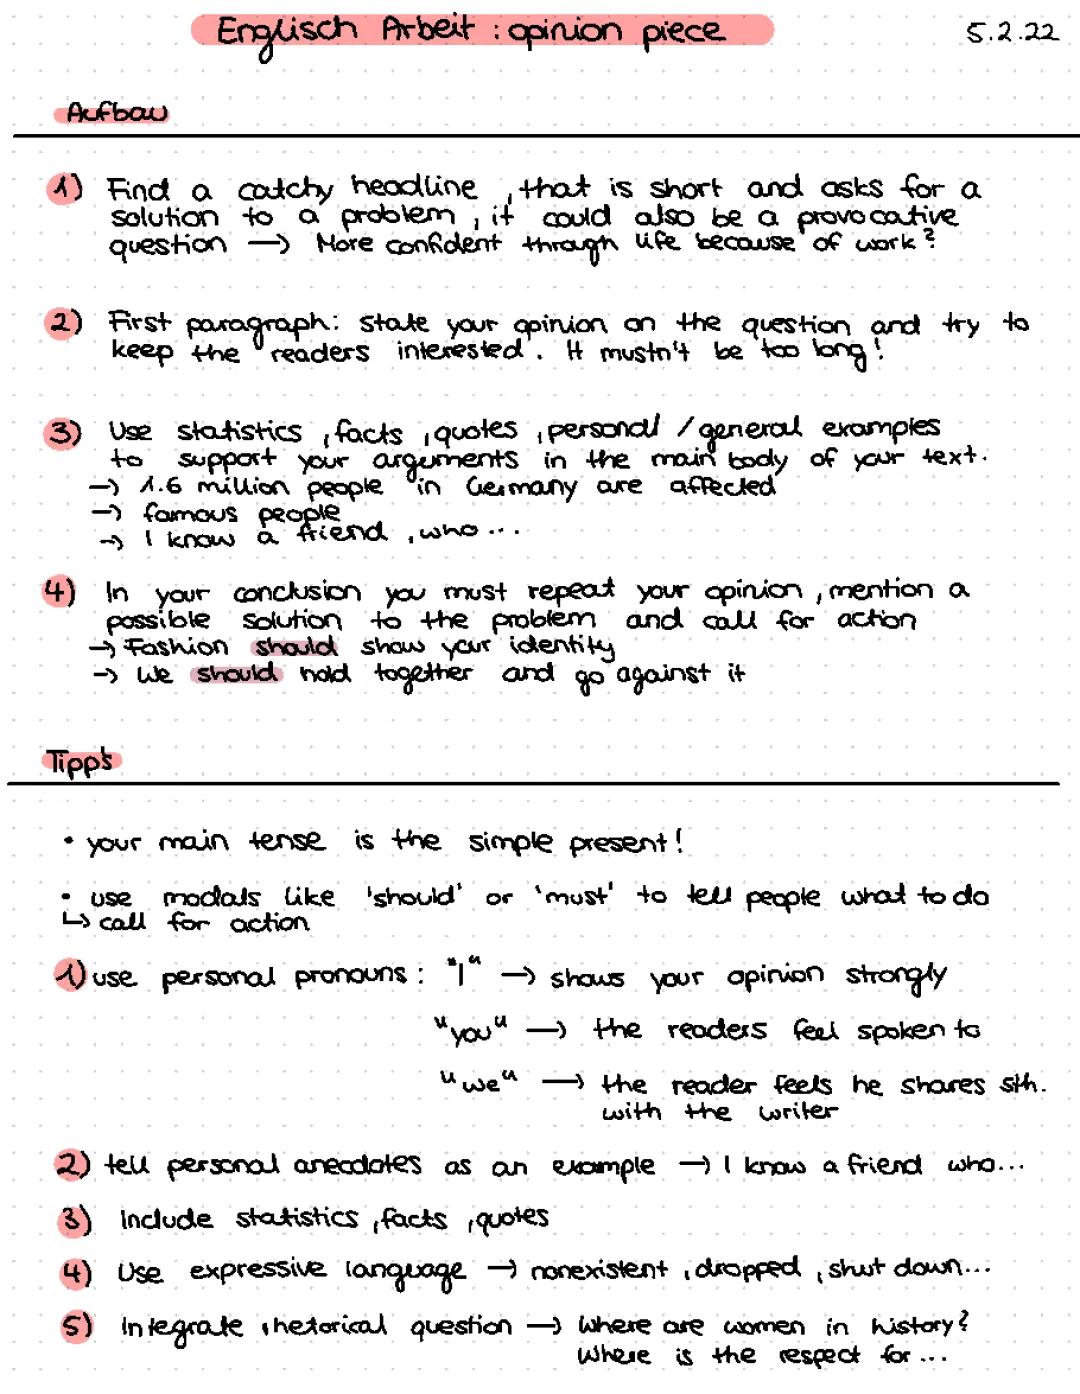 Englisch Arbeit : opinion piece
5.2.22
Aufbau
1) Find a catchy headline , that is short and asks for a
solution to a problem , it could also be a provocative
question → More confident through life because of work?
2) First paragraph: state your opinion on the question and try to
keep the readers interested. It mustn't be too long!
3) Use statistics , facts , quotes , personal / general examples
to support your arguments in the main body of your text.
→ 1.6 million people in Germany are affected
→ famous people
→ I know a friend , who ...
4) In your conclusion you must repeat your opinion , mention a
possible solution to the problem and call for action
→ Fashion should show your identity
→ We should hold together and go against it
Tipp's
• your main tense is the simple present!
• use modals like 'should' or 'must' to tell people what to do
↳ call for action
1) use personal pronouns: "I" → shows your opinion strongly
"you" → the readers feel spoken to
"we" → the reader feels he shares sth.
with the writer
2) tell personal anecdotes as an example → I know a friend who...
3) Include statistics , facts , quotes
4) Use expressive language → nonexistent , dropped , shut down...
5) Integrate rhetorical question → Where are women in history?
Where is the respect for ...